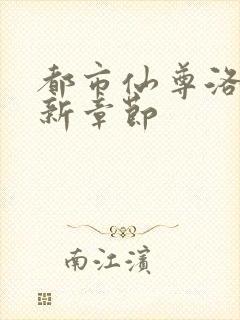 都市仙尊洛
新章节
南江滨